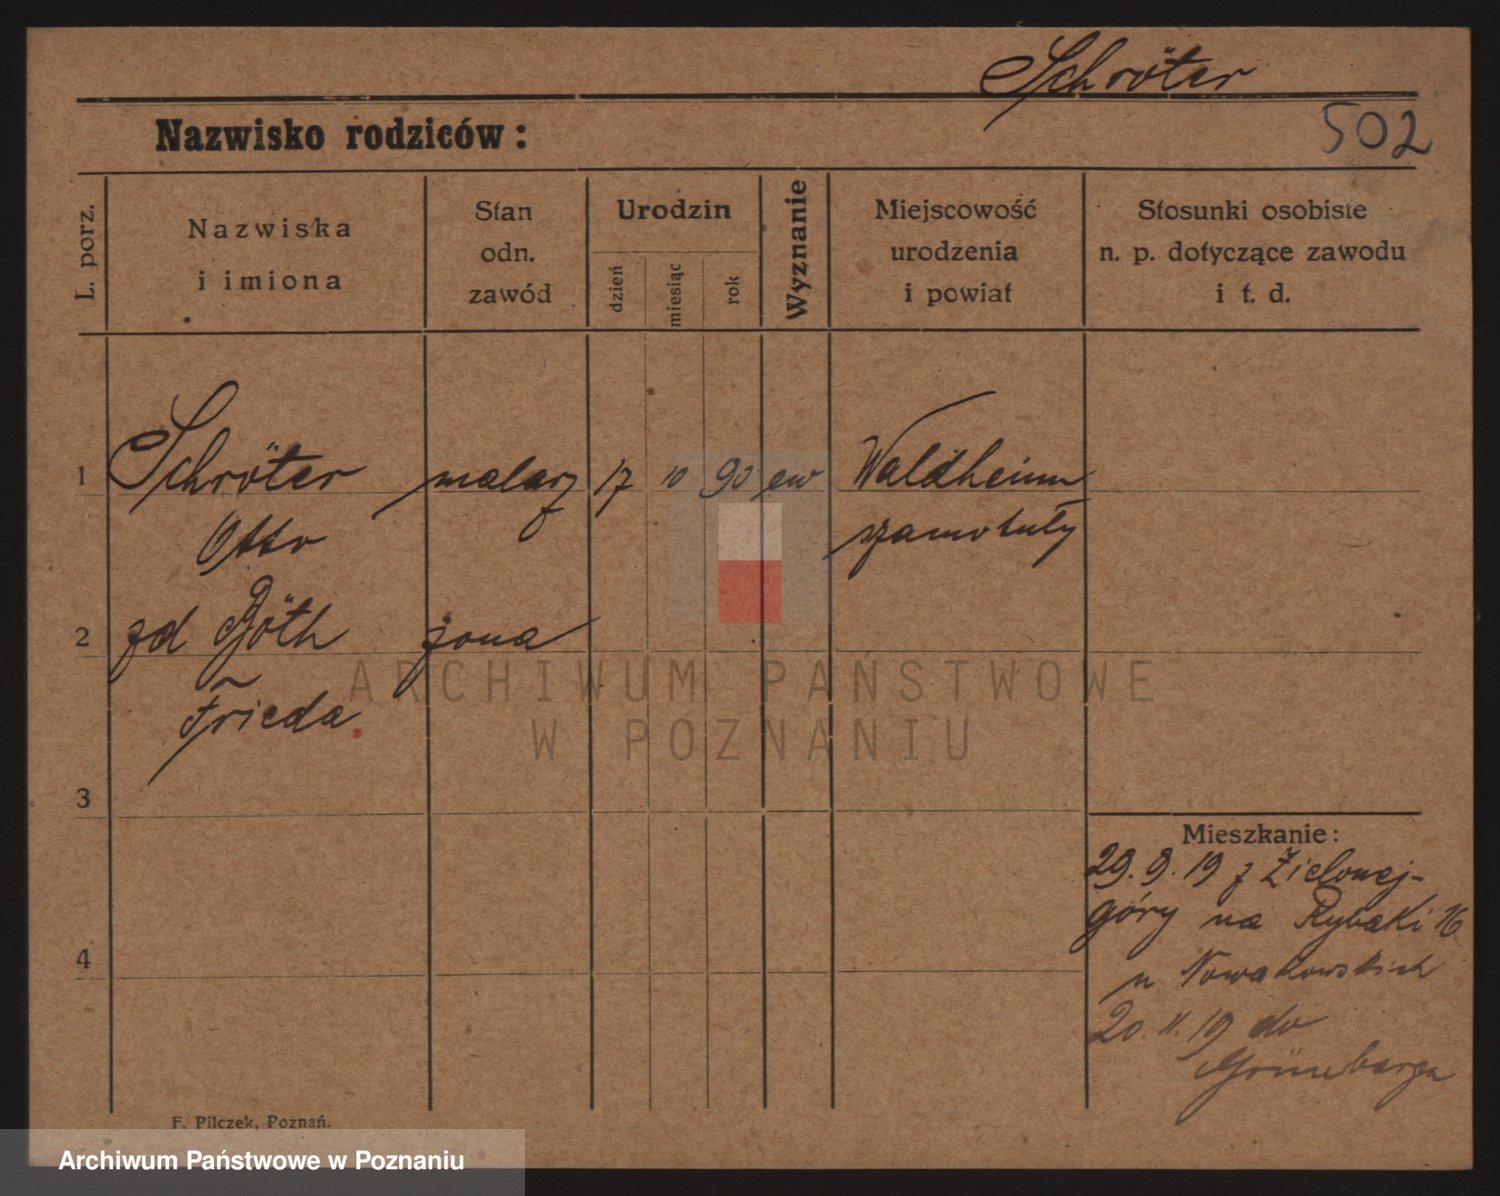 Schröter
Nazwisko rodziców:
502
L. porz.
Nazwiska
i imiona
Stan
odn.
zawód
Urodzin
dzień
miesiąc
rok
Wyznanie
Miejscowość
urodzenia
i powiat
Stosunki osobiste
n. p. dotyczące zawodu
i t. d.
1 Schröter malarz 17 10 90 ew Waldheim
Otto szamotuły
2 zd Böth żona
Frieda
3
Mieszkanie:
29. 9. 19 z Zielonej-
góry na Rybaki 16
4
u Nowakowskich
20. 11. 19 do
Grünberga
F. Pilczek, Poznań.
ARCHIWUM PAŃSTWOWE
W POZNANIU
Archiwum Państwowe w Poznaniu